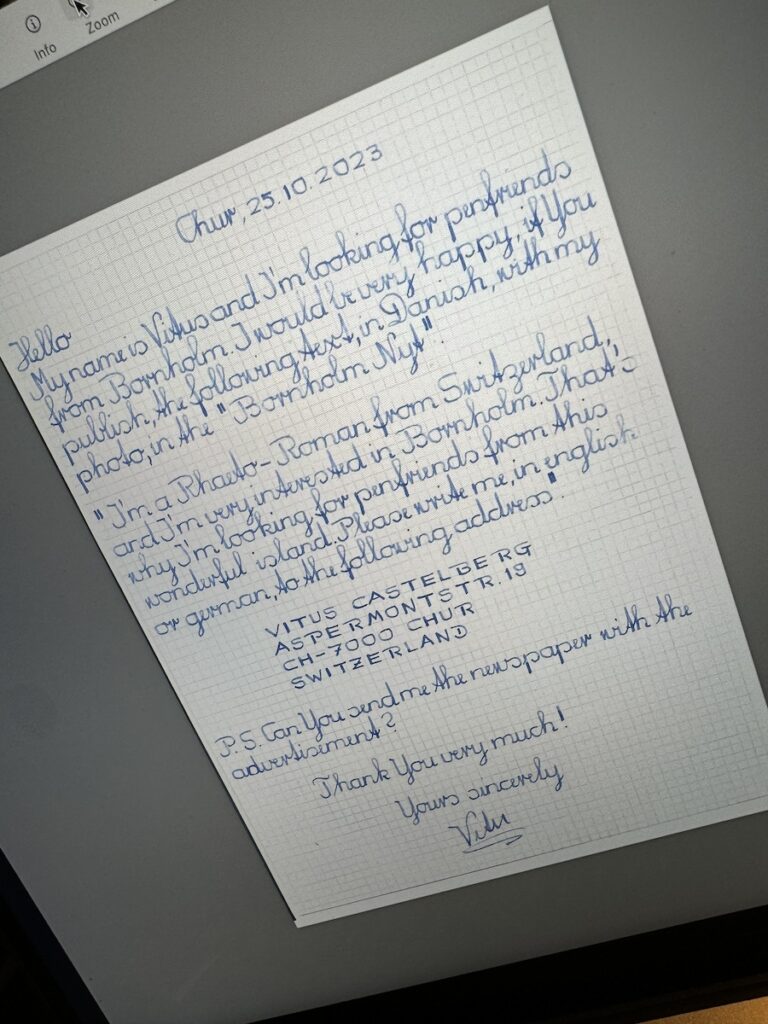 Info
Zoom
Chur, 25.10.2023
Hello
My name is Vitus and I'm looking for penfriends
from Bornholm. I would be very happy, if You
publish, the following text, in Danish, with my
photo, in the "Bornholm Nyt".
"I'm a Rhaeto-Roman from Switzerland,
and I'm very interested in Bornholm. That's
why I'm looking for penfriends from this
wonderful island. Please write me, in english
or german, to the following address".
VITUS CASTELBERG
ASPERMONTSTR. 19
CH-7000 CHUR
SWITZERLAND
P.S. Can You send me the newspaper with the
advertisement?
Thank You very much!
Yours sincerely
Vitus